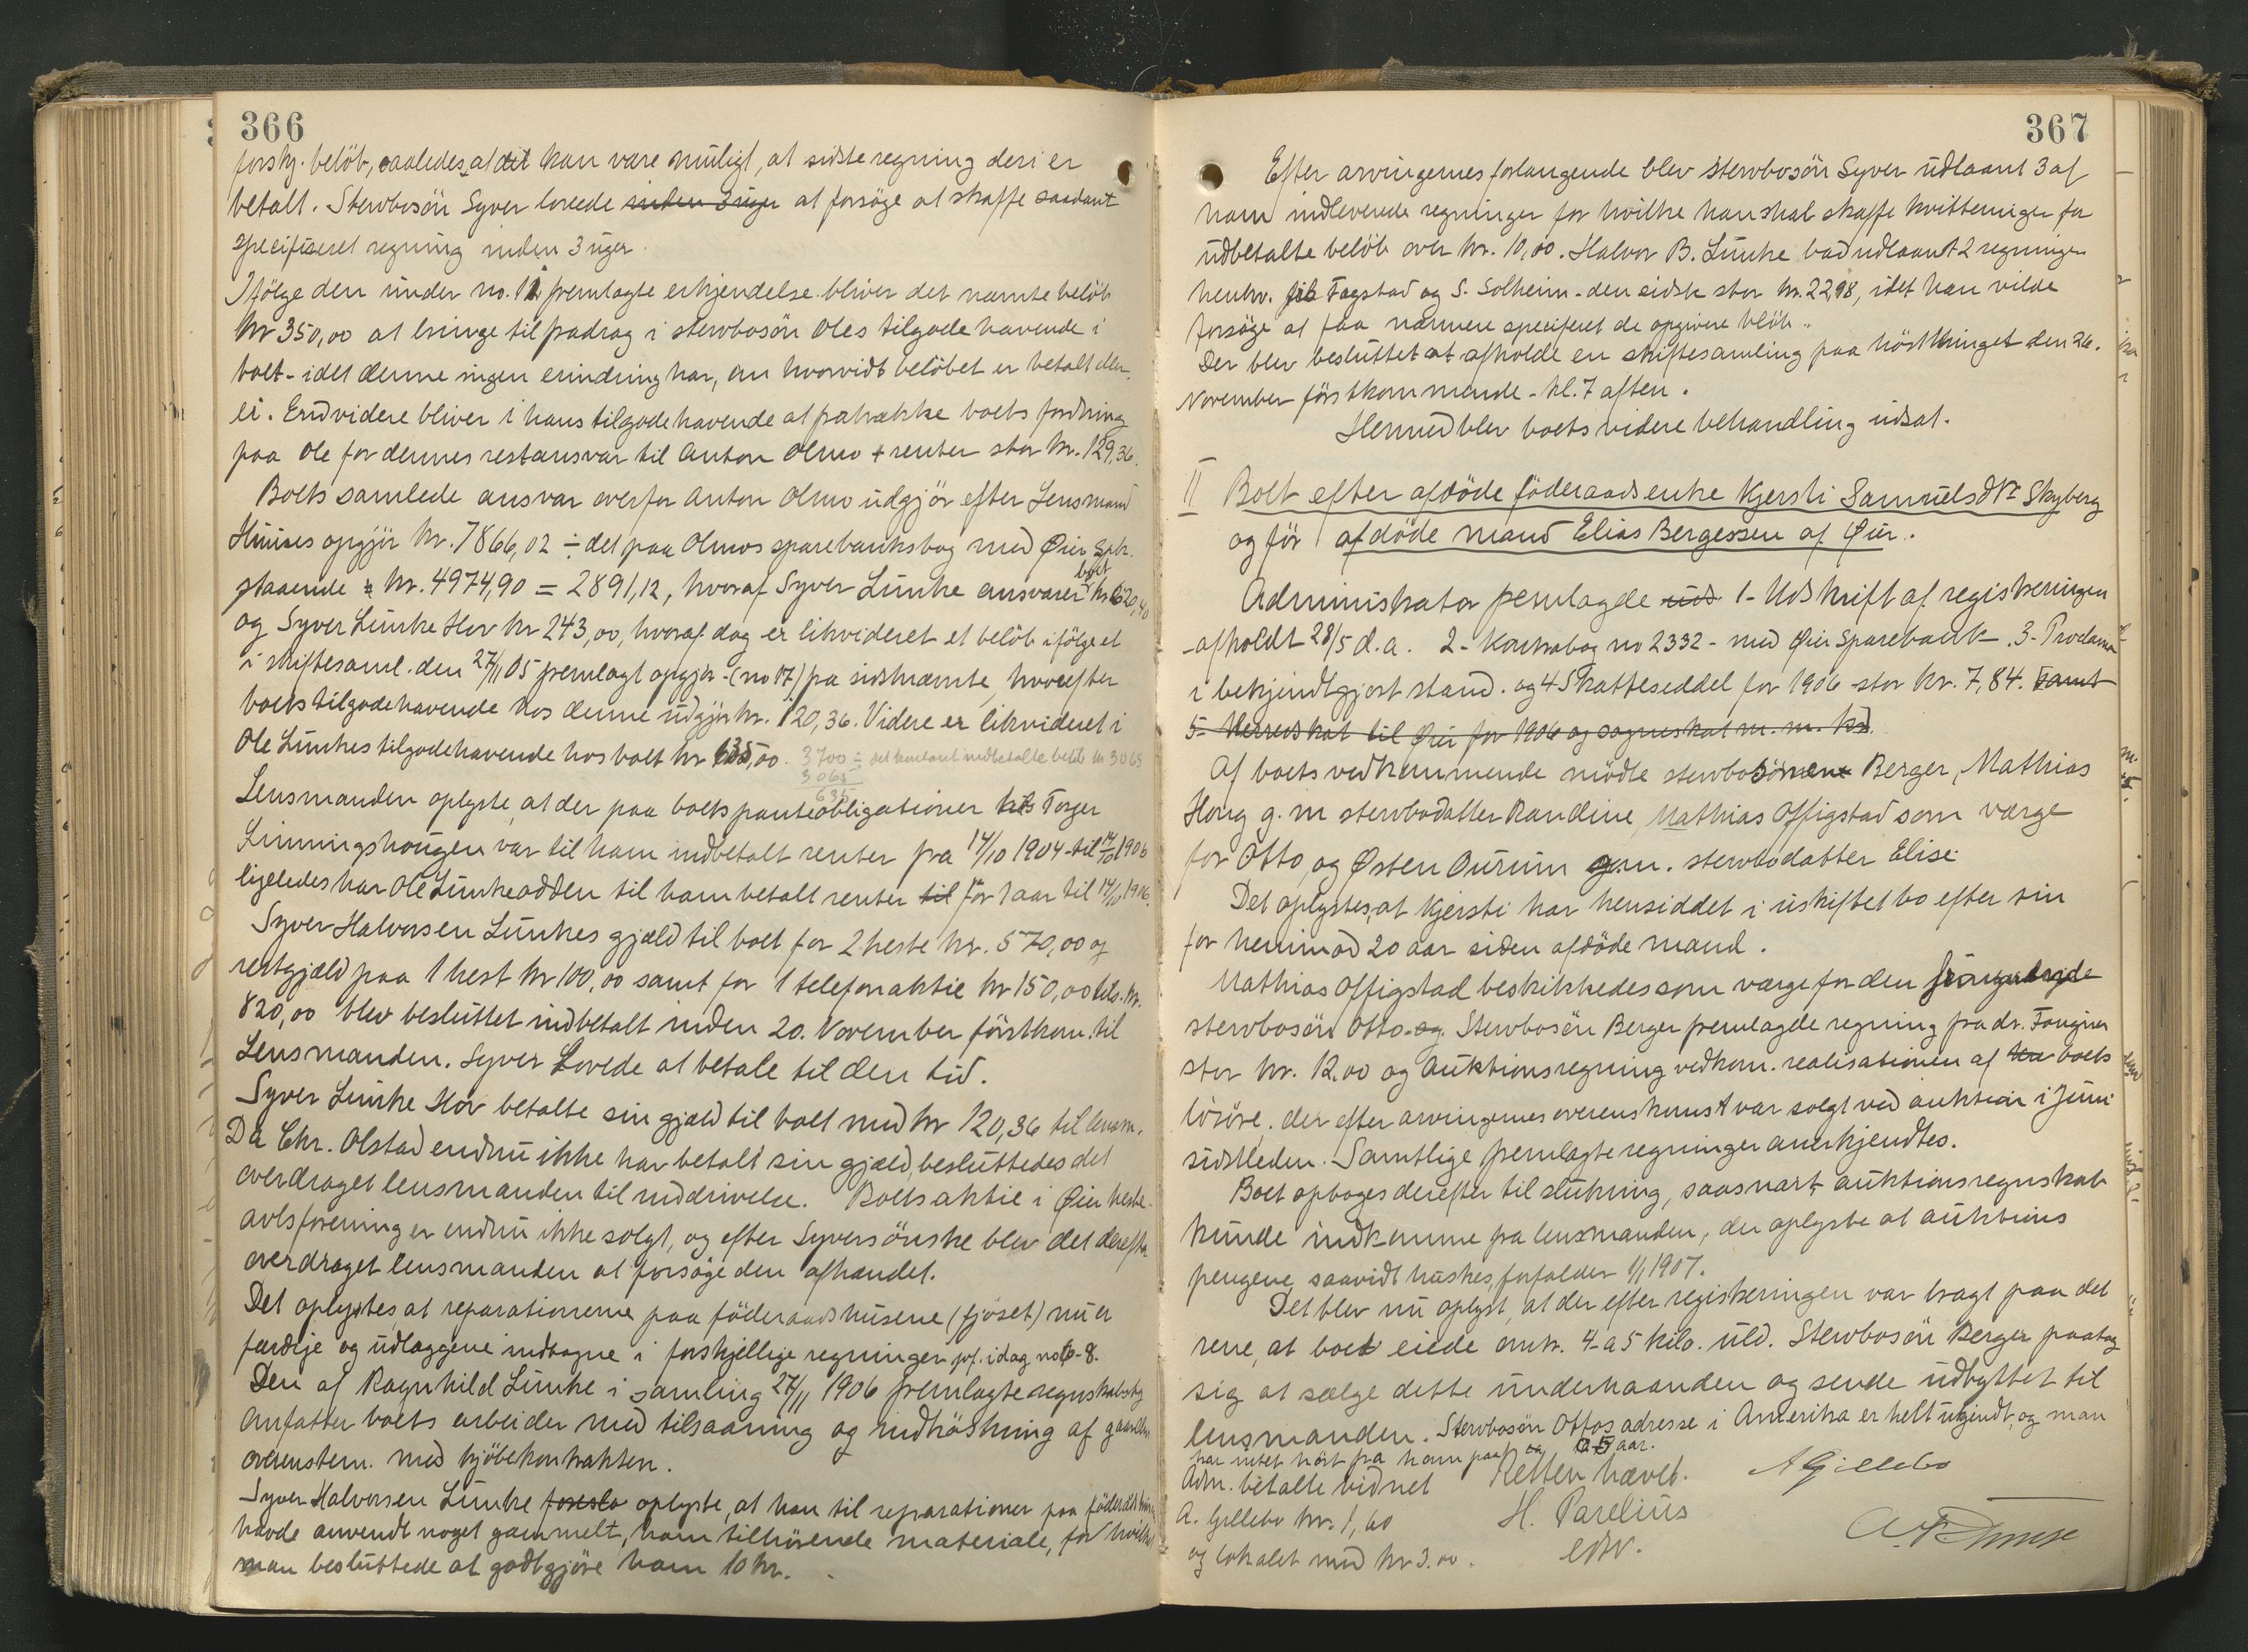 366
forskj. beløb, saaledes, at det kan være muligt, at sidste regning deri er
betalt. Stervbosön Syver lovede inden 3 uger at forsöge at skaffe saadant
specifiseret regning inden 3 uger.
Ifölge den under no. 11 fremlagte erkjendelse bliver det nævnte belöb
kr 350,00 at bringe til fradrag i stervbosön Oles tilgodehavende i
boet - idet denne ingen erindring har, om hvorvidt belöbet er betalt eller
ei. Endvidere bliver i hans tilgodehavende at fratrække boets fordring
paa Ole for dennes restansvar til Anton Olmo + renter stor kr. 129,36.
Boets samlede ansvar overfor Anton Olmo udgjör efter Lensmand
Huuses opgjör kr. 7866,02 ÷ det paa Olmos sparebanksbog med Øier Spb.
staaende kr. 4974,90 = 2891,12, hvoraf Syver Lunke ansvarer boet kr 620,40
og Syver Lunke Hov kr 243,00, hvoraf dog er likvideret et belöb ifölge et
i skiftesaml. den 27/11 05 fremlagt opgjör - (no 17) fra sidstnævnte, hvorefter
boets tilgodehavende hos denne udgjör kr. 120,36. Videre er likvideret i
Ole Lunkes tilgodehavende hos boet kr 635,00. 3700 ÷ det kontant indbetalte belöb kr 3065
3065
635
Lensmanden oplyste, at der paa boets panteobligationer hos Torger
Linningshougen var til ham indbetalt renter fra 14/10 1904 til 14/10 1906
ligeledes har Ole Lunkeodden til ham betalt renter til for 1 aar til 14/10 1906.
Syver Halvorsen Lunkes gjæld til boet for 2 heste kr. 570,00 og
restgjæld paa 1 hest kr 100,00 samt for 1 telefonaktie kr 150,00 tils. kr.
820,00 blev besluttet indbetalt inden 20. November förstkom. til
Lensmanden. Syver Lovede at betale til den tid.
Syver Lunke Hov betalte sin gjæld til boet med kr 120,36 til lensm.
Da Chr. Olstad endnu ikke har betalt sin gjæld, besluttedes det
overdraget lensmanden til inddrivelse. Boets aktie i Øier heste-
avlsforening er endnu ikke solgt, og efter Syvers önske blev det derefter
overdraget lensmanden at forsöge den afhændet.
Det oplystes, at reparationerne paa föderaadshusene (fjöset) nu er
færdije og udlæggene indtagne i forskjellige regninger jvf. idag no 6-8.
Den af Ragnhild Lunke i samling 27/11 1906 fremlagte regnskabsbog
Anfatter boets arbeider med tilsaaning og indhöstning af gaarden
overenstem. med kjöbekontrakten.
Syver Halvorsen Lunke foreslo oplyste, at han til reparationer paa föderådshusene
havde anvendt noget gammelt, ham tilhörende materiale, for hvilket
man besluttede at godtgjöre ham 10 kr.
367
Efter arvingernes forlangende blev stervbosön Syver udlaant 3 af
ham indleverede regninger for hvilke han skal skaffe kvitteringer for
udbetalte belöb over kr. 10,00. Halvor B. Lunke bad udlaant 2 regninger
henhv. fra Fagstad og S. Solheim - den sidste stor kr. 22,98, idet han vilde
forsöge at faa nærmere speciferet de opgivne belöb.
Der blev besluttet at afholde en skiftesamling paa hösttinget den 26.
November förstkommende - kl. 7 aften.
Hermed blev boets videre behandling udsat.
II Boet efter afdöde föderaadsenke Kjersti Samuelsdtr Skyberg
og för afdöde mand Elias Bergessen af Øier.
Administrator fremlagde 1 - Udskrift af registreringen
afholdt 28/5 d.a. 2 - Kontrabog no 2332 - med Øier Sparebank. 3 - Proclama
i bekjendtgjort stand. og 4 Skatteseddel for 1906 stor kr. 7,84. Samt
5 - Herredskat til Øier for 1906 og sogneskat m. m. kr
Af boets vedkommende mödte stervbosönnen Berger, Mathias
Haug g. m stervbodatter Randine, Mathias Offigstad som værge
for Otto, og Østen Aurum g.m. stervbodatter Elise.
Det oplystes, at Kjersti har hensiddet i uskiftet bo efter sin
for henimod 20 aar siden afdöde mand.
Mathias Offigstad beskikkedes som værge for den fraværende
stervbosön Otto. Stervbosön Berger fremlagde regning fra dr. Faugner
stor kr. 12.00 og Auktionsregning vedkom. realisationen af boets
lösöre, der efter arvingernes overenskomst var solgt ved auktion i Juni
sidstleden. Samtlige fremlagte regninger anerkjendtes.
Boet optoges derefter til slutning, saasnart auktionsregnskab
kunde indkomme fra lensmanden, der oplyste at auktions
pengene, saavidt huskes, forfalder 1/1 1907.
Det blev nu oplyst, at der efter registreringen var bragt paa det
rene, at boet eiede omtr. 4 a 5 kilo. uld. Stervbosön Berger paatog
sig at sælge dette underhaanden og sende udbyttet til
lensmanden. Stervbosön Ottos adresse i Amerika er helt ukjendt, og man
har intet hört fra ham paa ca 5 aar.
Adm. betalte vidnet Retten hævet. A Gillebo
A. Gillebo kr. 1,60 H. Parelius
og lokalet med kr 3.00.